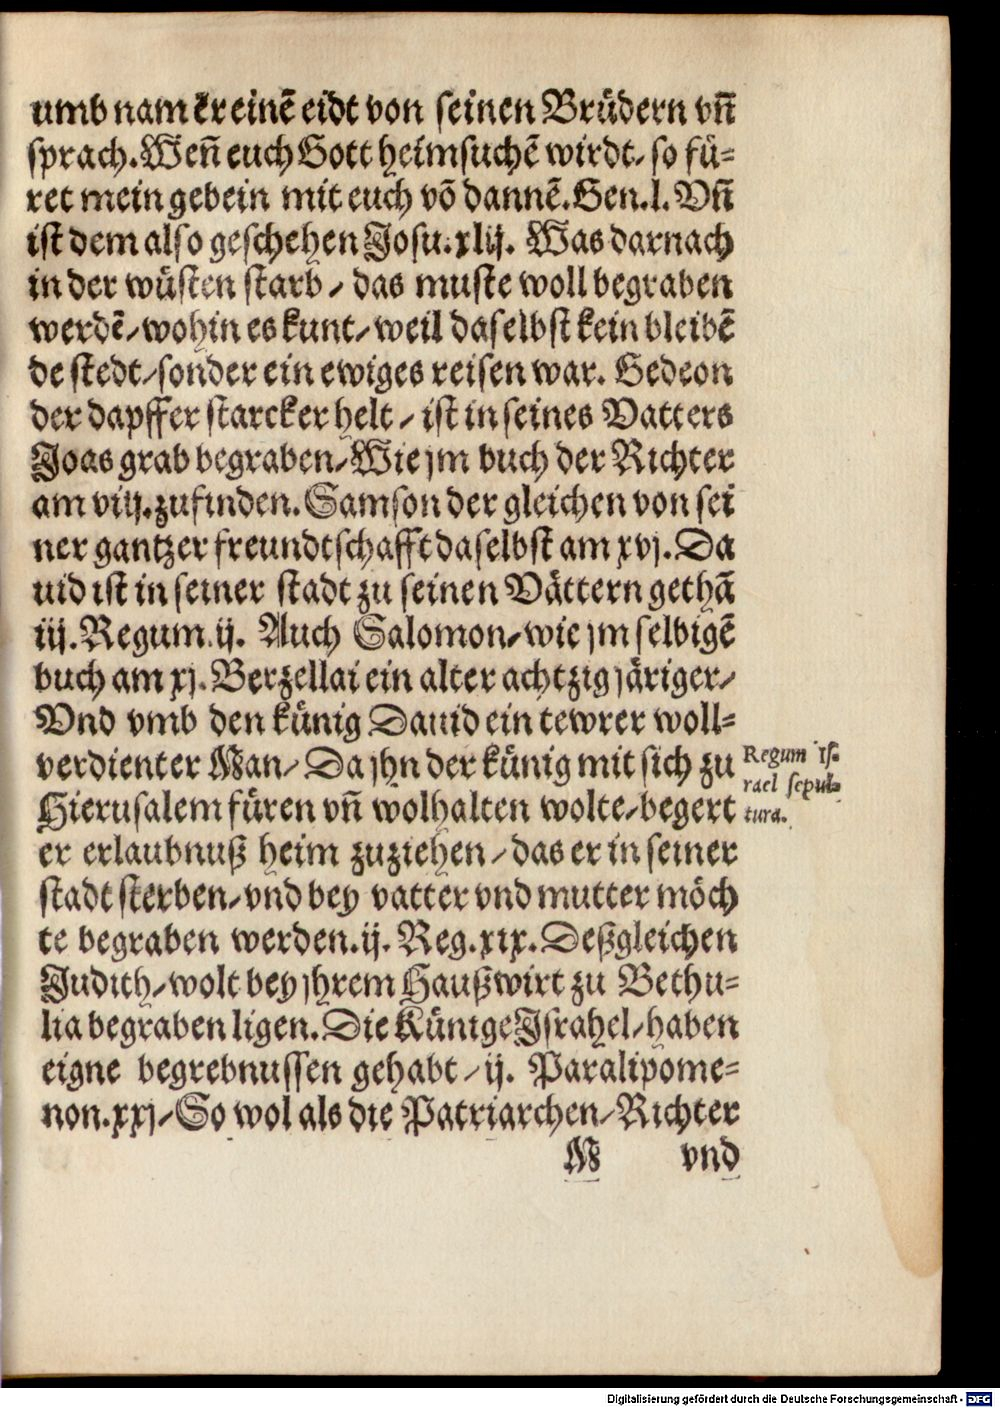 umb nam er einē eidt von seinen Brüdern vn̄
sprach. Wen̄ euch Gott heimsuchē wirdt / so fü=
ret mein gebein mit euch vō dannē. Gen. l. Vn̄
ist dem also geschehen Josu. xlij. Was darnach
in der wüsten starb / das muste woll begraben
werdē / wohin es kunt / weil daselbst kein bleibē
de stedt / sonder ein ewiges reisen war. Gedeon
der dapffer starcker helt / ist in seines Vatters
Joas grab begraben / Wie jm buch der Richter
am viij. zufinden. Samson der gleichen von sei
ner gantzer freundtschafft daselbst am xvj. Da
uid ist in seiner stadt zu seinen Vättern gethā
iij. Regum. ij. Auch Salomon / wie jm selbigē
buch am xj. Berzellai ein alter achtzig järiger /
Vnd vmb den künig Dauid ein tewrer woll=
verdienter Man / Da jhn der künig mit sich zu
Hierusalem füren vn̄ wolhalten wolte / begert
er erlaubnuß heim zuziehen / das er in seiner
stadt sterben / vnd bey vatter vnd mutter möch
te begraben werden. ij. Reg. xix. Deßgleichen
Judith / wolt bey jhrem Haußwirt zu Bethu=
lia begraben ligen. Die Künige Jsrahel / haben
eigne begrebnussen gehabt / ij. Paralipome=
non. xxj / So wol als die Patriarchen / Richter
M vnd
Regum Is=
rael sepul=
tura.
Digitalisierung gefördert durch die Deutsche Forschungsgemeinschaft - DFG